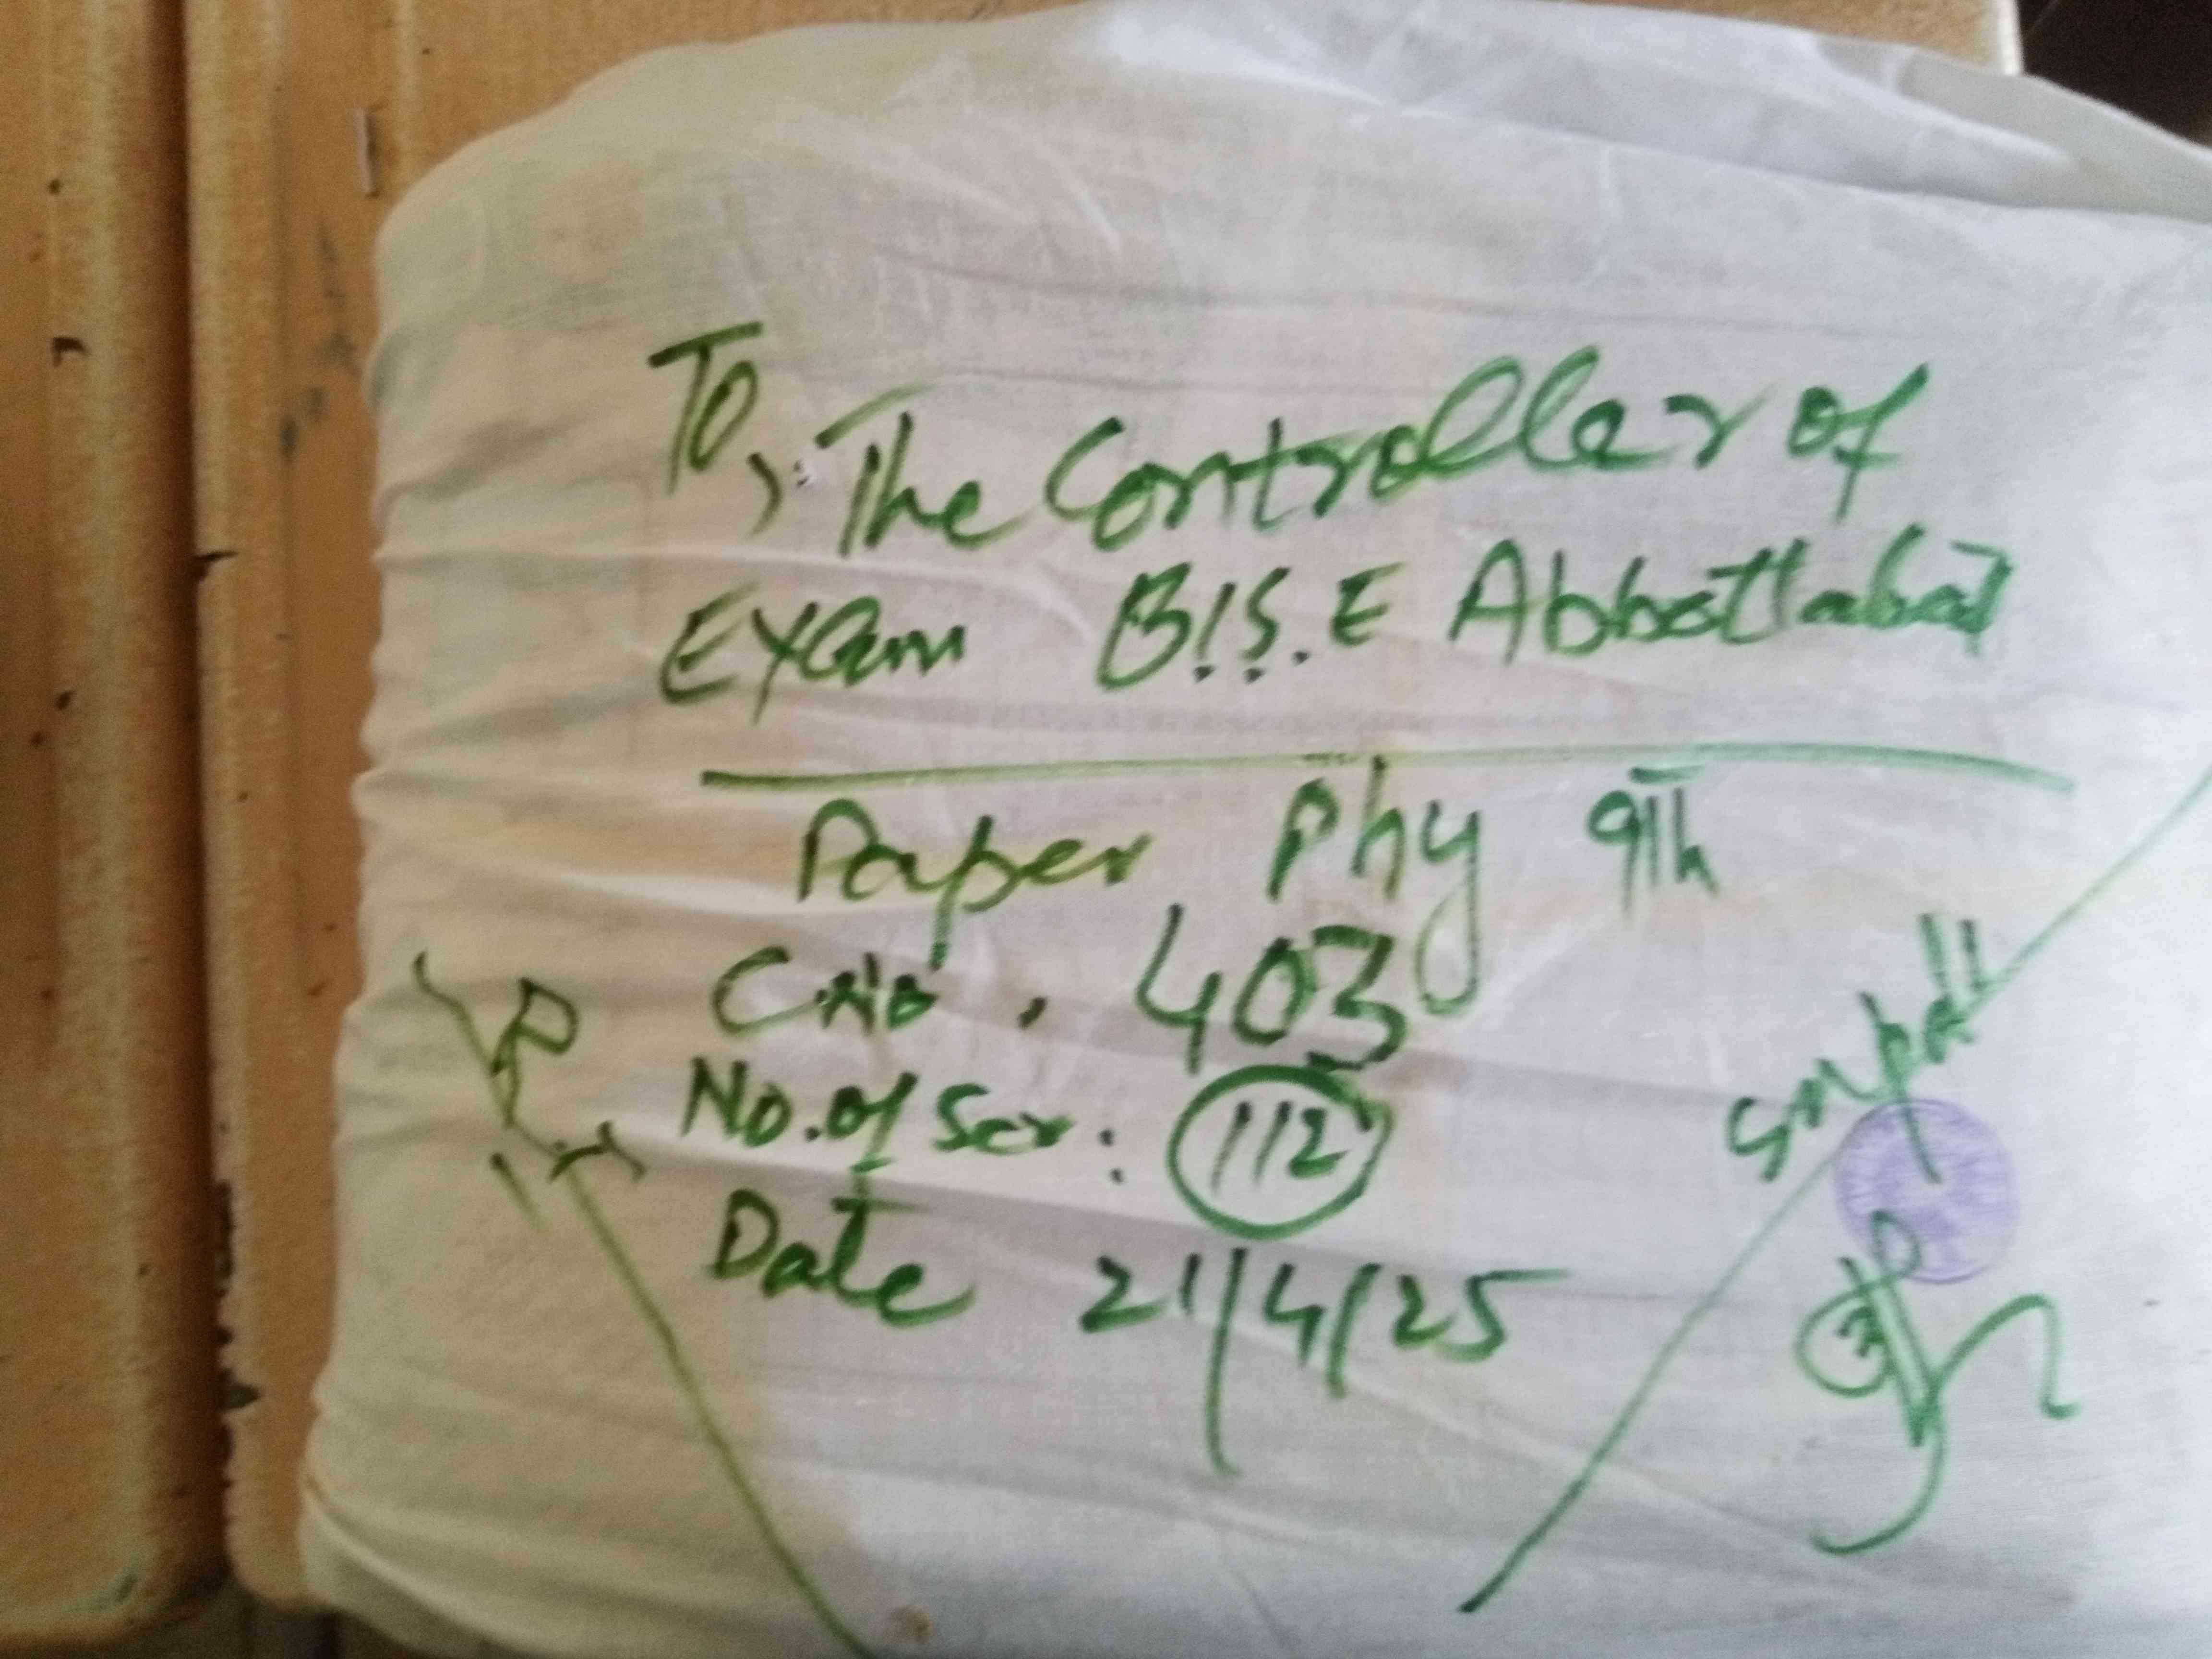 To,
The Controller of
Exam B.I.S.E Abbottabad
Paper Phy 9th
C.No. 403
No. of Scr: 112
Date 21/4/25
Supdtt